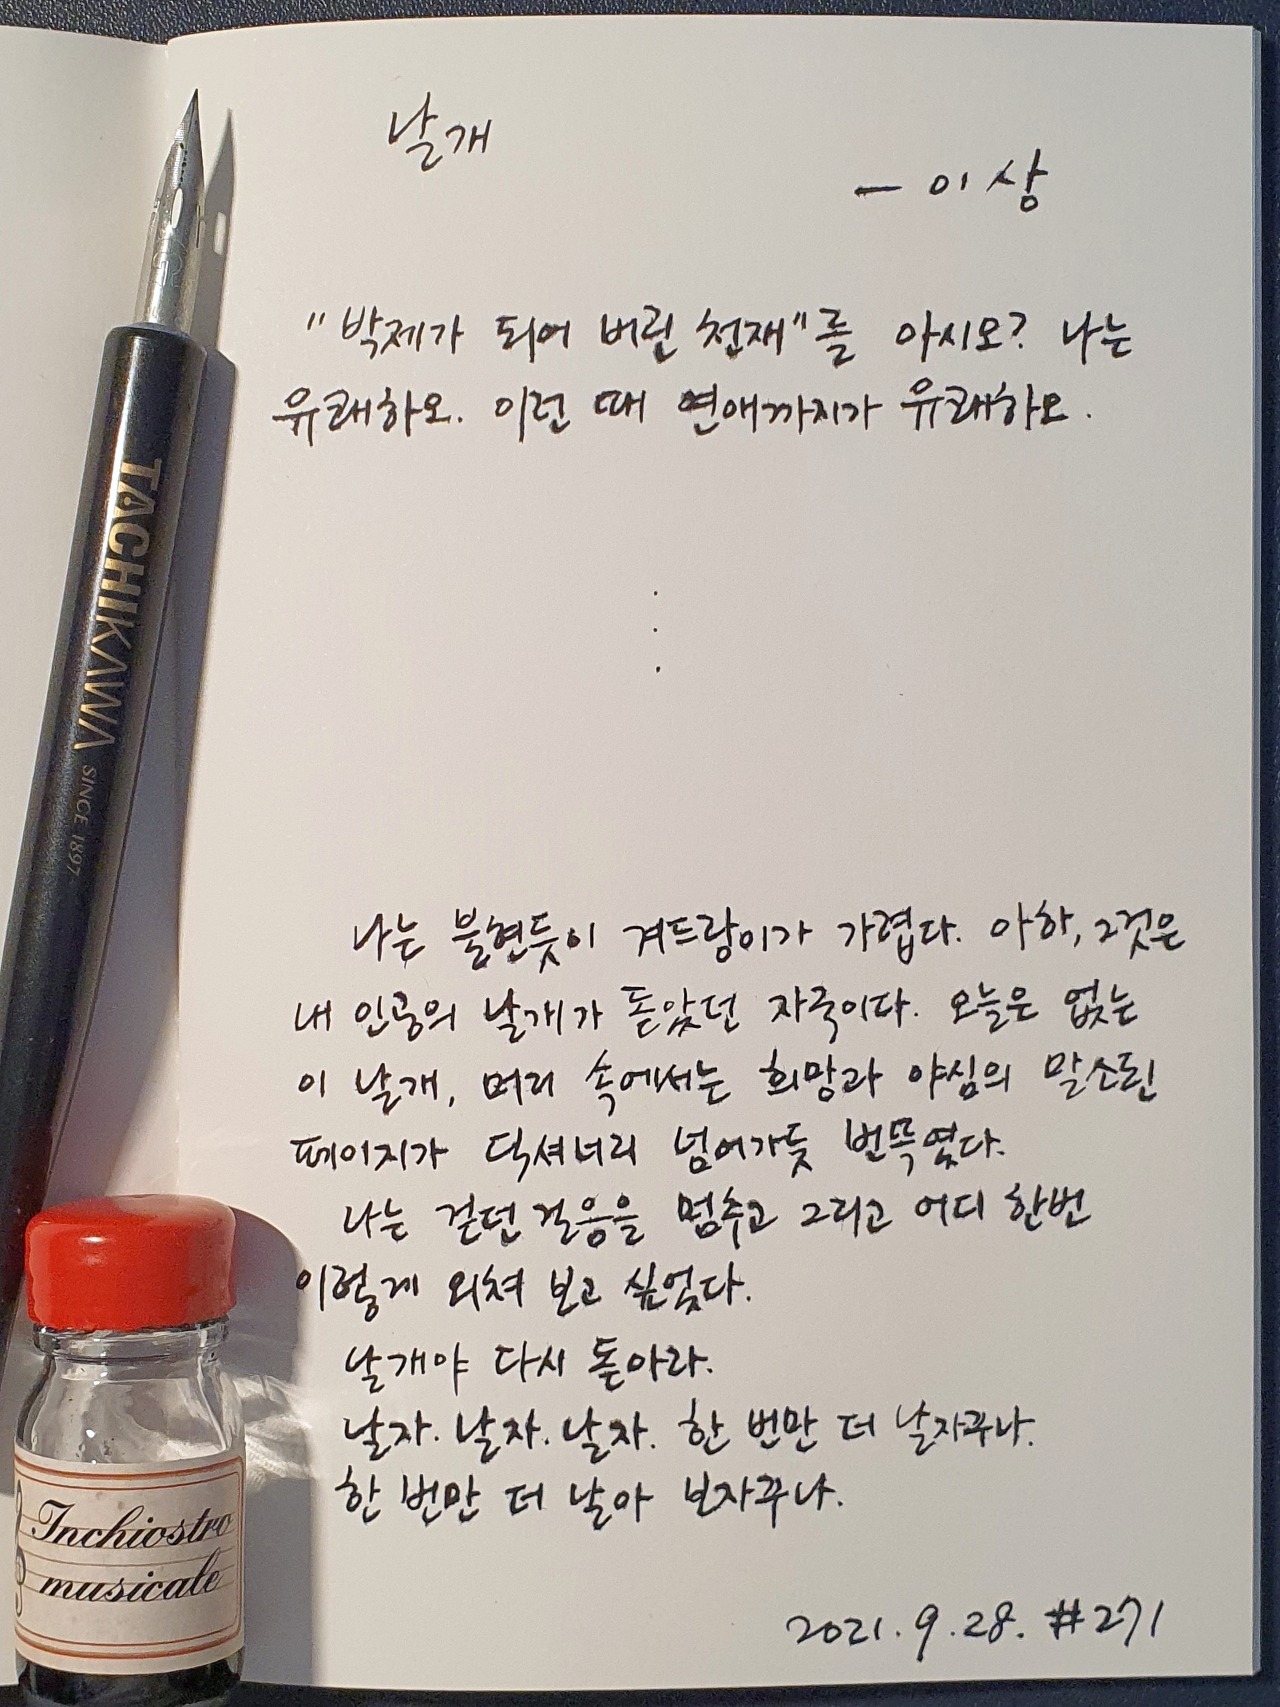 날개
— 이상
"박제가 되어 버린 천재"를 아시오? 나는
유쾌하오. 이런 때 연애까지가 유쾌하오.
.
.
.
나는 불현듯이 겨드랑이가 가렵다. 아하, 그것은
내 인공의 날개가 돋았던 자국이다. 오늘은 없는
이 날개, 머리 속에서는 희망과 야심의 말소된
페이지가 딕셔너리 넘어가듯 번뜩였다.
나는 걷던 걸음을 멈추고 그리고 어디 한번
이렇게 외쳐 보고 싶었다.
날개야 다시 돋아라.
날자. 날자. 날자. 한 번만 더 날자꾸나.
한 번만 더 날아 보자꾸나.
2021. 9. 28. #271
TACHIKAWA SINCE 1897
Inchiostro
musicale